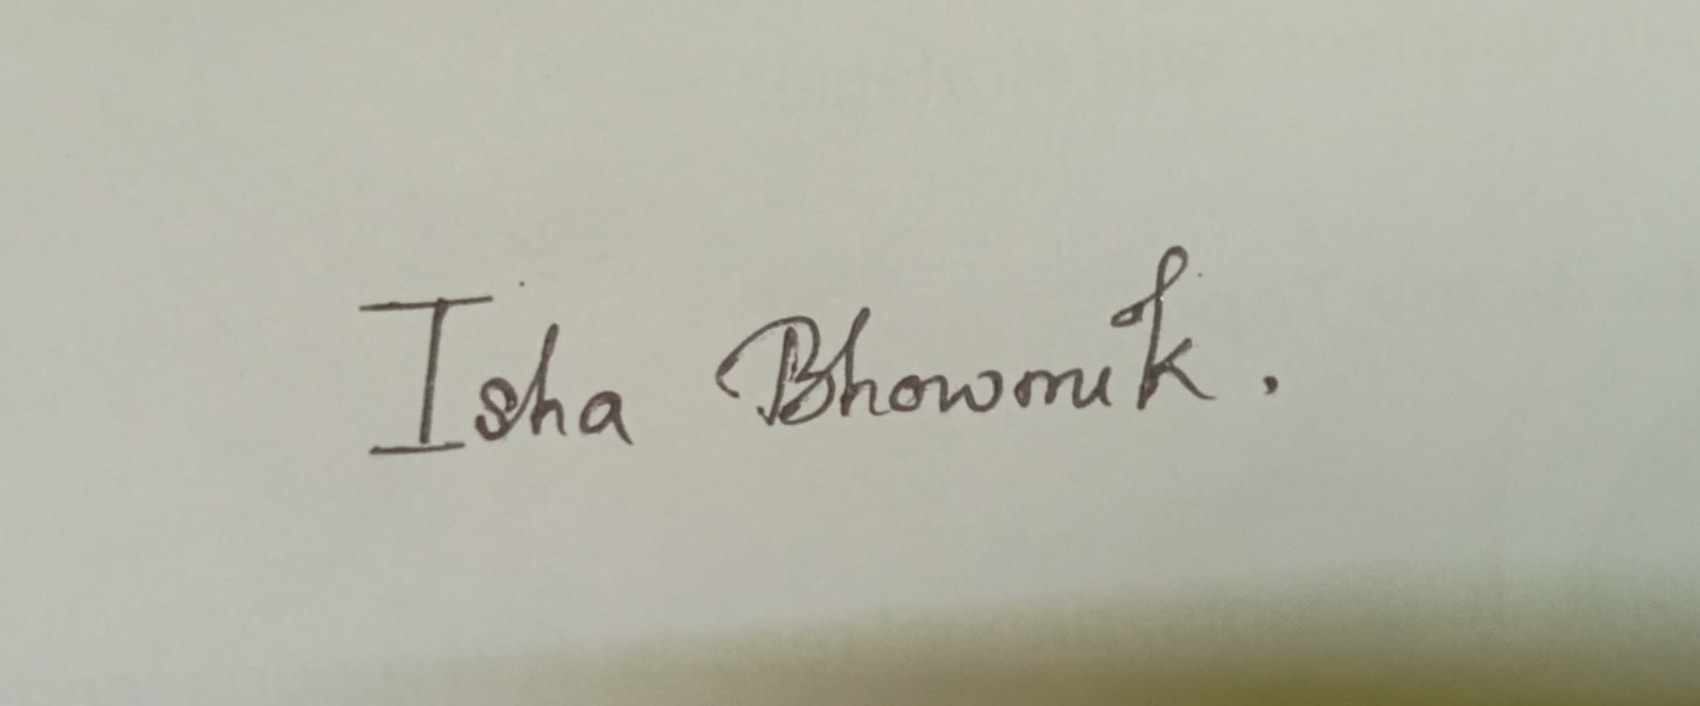 Isha Bhowmik.